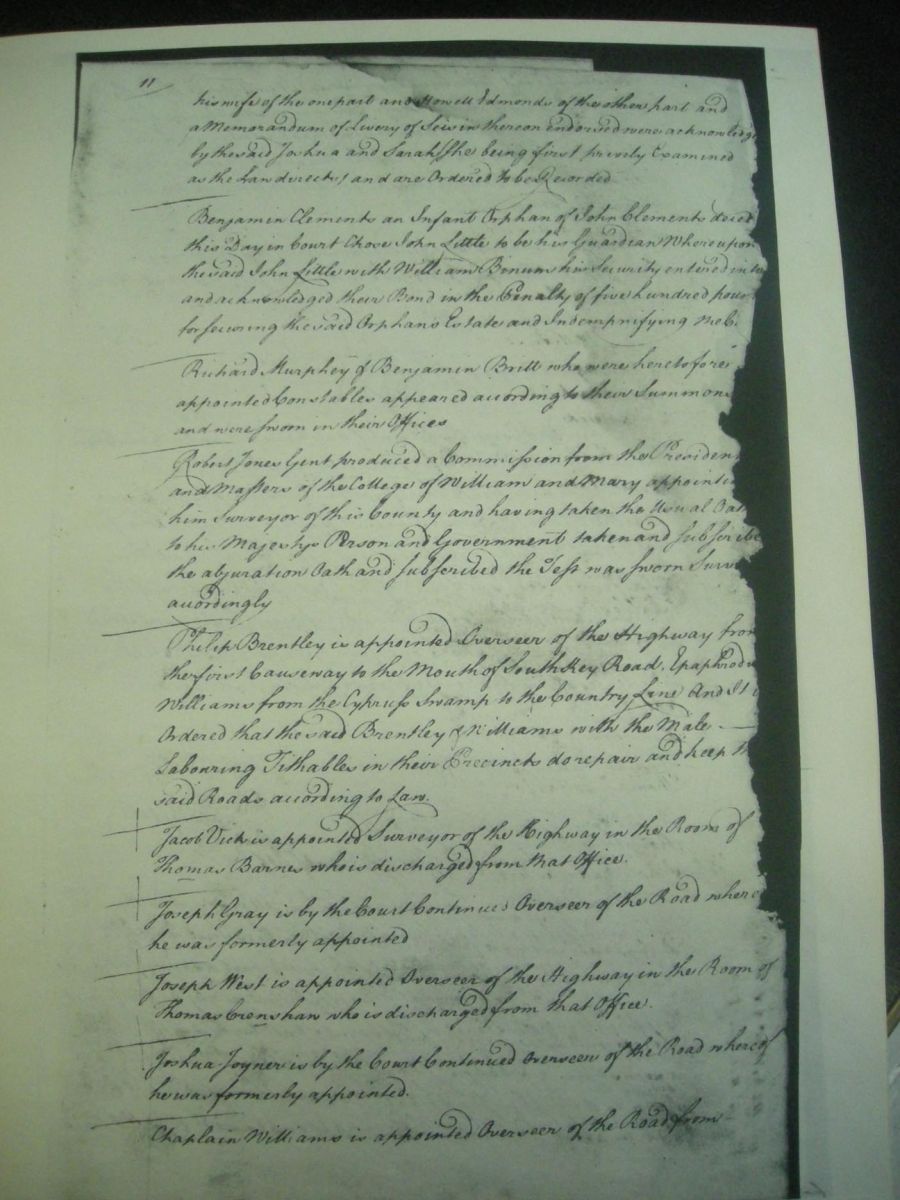 11
his wife of the one part and Howell Edmonds of the other part and
a Memorandum of Livery of Seisin thereon endorsed were acknowledge
by the said Joshua and Sarah she being first privily Examined
as the Law directs and are Ordered to be Recorded
Benjamin Clements an Infant Orphan of John Clements deced
this Day in Court Chose John Little to be his Guardian Whereupon
the said John Little with William Binum his Security entered into
and acknowledged their Bond in the Penalty of five hundred poun
for securing the said Orphans Estate and Indempnifying the C
Richard Murphey & Benjamin Britt who were heretofore
appointed Constables appeared according to their Summons
and were sworn in their Offices
Robert Jones Gent produced a Commission from the President
and Masters of the College of William and Mary appointin
him Surveyor of this County and having taken the Usual Oat
to his Majestys Person and Government taken and subscribe
the abjuration Oath and subscribed the Test was sworn Surv
accordingly
Philip Brentley is appointed Overseer of the Highway from
the first Causeway to the Mouth of South Key Road, Epaphrodu
Williams from the Cypruss Swamp to the Country Line And It i
Ordered that the said Brentley & Williams with the Male
Labouring Tithables in their Precincts do repair and keep th
said Roads according to Law.
Jacob Vick is appointed Surveyor of the Highway in the Room of
Thomas Barnes who is discharged from that Office.
Joseph Gray is by the Court Continued Overseer of the Road whereo
he was formerly appointed
Joseph West is appointed Overseer of the Highway in the Room of
Thomas Crenshaw who is discharged from that Office.
Joshua Joyner is by the Court Continued Overseer of the Road whereof
he was formerly appointed.
Chaplain Williams is appointed Overseer of the Road from